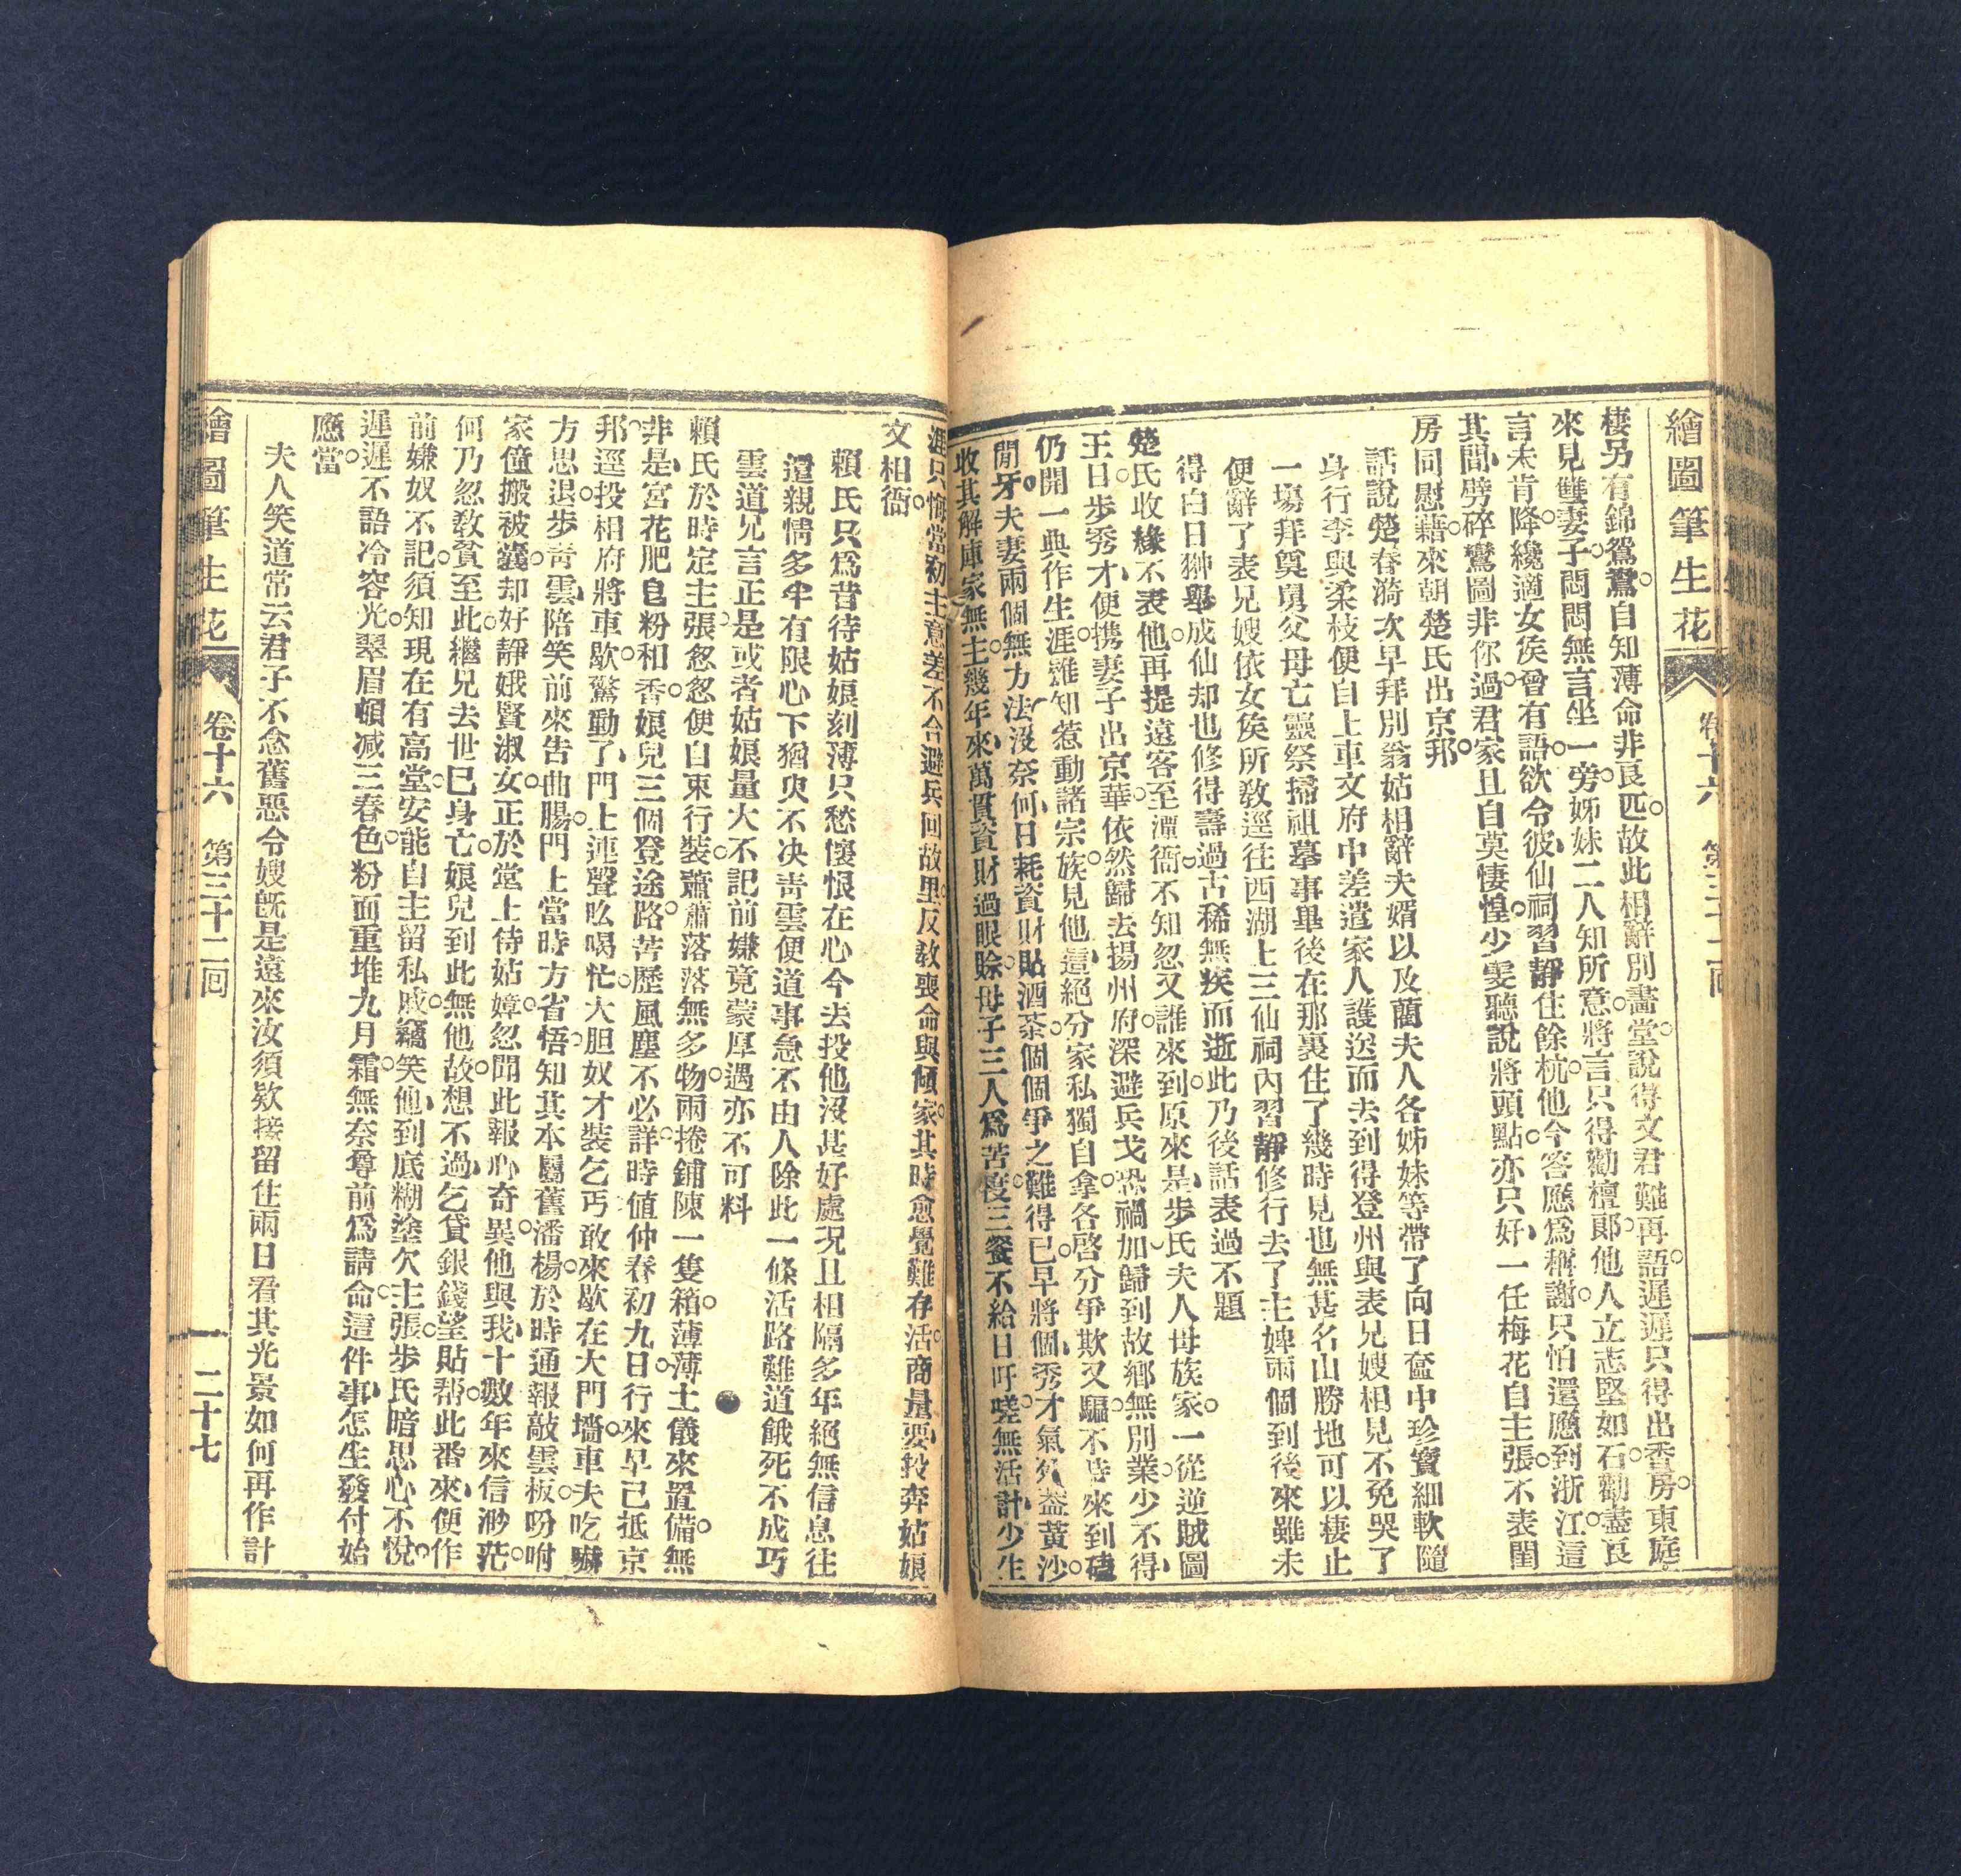 繪圖筆生花 卷十六 第三十二回
棲另有錦鴛鴦。自知薄命非良匹。故此相辭別畫堂。說得文君難再語。遲遲只得出香房。東庭
來見雙妻子。悶悶無言坐一旁。姊妹二人知所意。將言只得勸檀郎。他人立志堅如石。勸盡良
言未肯降。纔適女侯曾有語。欲令彼仙祠習靜住餘杭。他今答應為稱謝。只怕還應到浙江。這
其間、劈碎鸞圖非你過。君家且自莫悽惶。少雯聽說將頭點。亦只好、一任梅花自主張。不表閨
房同慰藉。來朝楚氏出京邦。
話說楚春漪次早拜別翁姑相辭夫婿以及藺夫人各姊妹等帶了向日奩中珍寶細軟隨
身行李與柔枝便自上車文府中差遣家人護送而去到得登州與表兄嫂相見不免哭了
一塲拜奠舅父母亡靈祭掃祖墓事畢後在那裏住了幾時見也無甚名山勝地可以棲止
便辭了表兄嫂依女侯所敎逕往西湖上三仙祠內習靜修行去了主婢兩個到後來雖未
得白日翀舉成仙却也修得壽過古稀無疾而逝此乃後話表過不題
楚氏收緣不表他。再提遠客至潭衙。不知忽又誰來到。原來是、步氏夫人母族家。一從逆賊圖
王日。步秀才、便攜妻子出京華。依然歸去揚州府。深避兵戈恐禍加。歸到故鄉無別業。少不得、
仍開一典作生涯。誰知惹動諸宗族。見他、這絕分家私獨自拿。各啓分爭欺又騙。不時來到磕
閒牙。夫妻兩個無方法。沒奈何、日耗資財貼酒茶。個個爭之難得已。早將個、秀才氣死葢黃沙。
收其解庫家無主。幾年來、萬貫資財過眼賒。母子三人爲苦度。三餐不給日吁嗟。無活計、少生
涯。只悔當初主意差。不合避兵回故里。反敎喪命與傾家。其時愈覺難存活。商量要、投奔姑娘
文相衙。
賴氏只爲昔待姑娘刻薄只愁懷恨在心今去投他沒甚好處况且相隔多年絕無信息往
還親情多半有限心下猶臾不决靑雲便道事急不由人除此一條活路難道餓死不成巧
雲道兄言正是或者姑娘量大不記前嫌竟蒙厚遇亦不可料
賴氏於時定主張。忽忽便自束行裝。蕭蕭落落無多物。兩捲鋪陳一隻箱。薄薄土儀來置備。無
非是、宮花肥皂粉和香。娘兒三個登途路。苦歷風塵不必詳。時值仲春初九日。行來早已抵京
邦。逕投相府將車歇。驚動了、門上連聲吆喝忙。大胆奴才裝乞丐。敢來歇在大門墻。車夫吃嚇
方思退。步靑雲、陪笑前來告曲腸。門上當時方省悟。知其本屬舊潘楊。於時通報敲雲板。吩咐
家僮搬被囊。却好靜娥賢淑女。正於堂上侍姑嫜。忽聞此報心奇異。他與我、十數年來信渺茫。
何乃忽敎貧至此。繼兄去世已身亡。娘兒到此無他故。想不過、乞貸銀錢望貼帮。此番來、便作
前嫌奴不記。須知現在有高堂。安能自主留私戚。竊笑他、到底糊塗欠主張。步氏暗思心不悅。
遲遲不語冷容光。翠眉頓减三春色。粉面重堆九月霜。無奈尊前爲請命。這件事、怎生發付始
應當。
夫人笑道常云君子不念舊惡令嫂旣是遠來汝須欵接留住兩日看其光景如何再作計
繪圖筆生花 卷十六 第三十二回 二十七